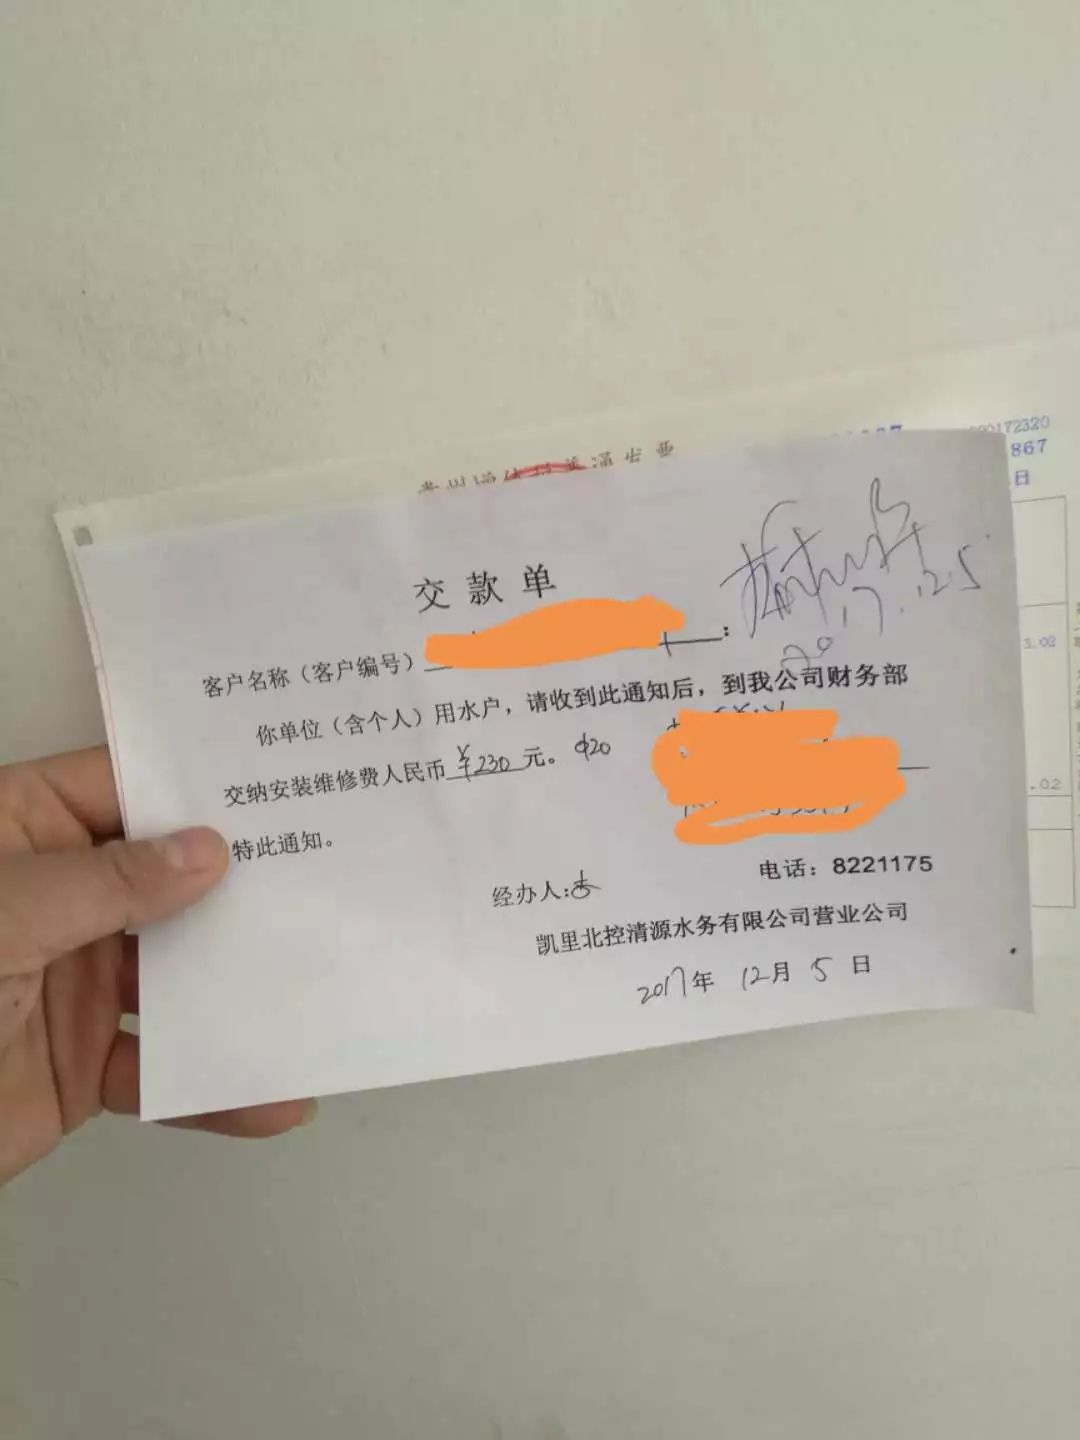 20172320
867
日
交款单
2017.12.5
客户名称（客户编号）：
你单位（含个人）用水户，请收到此通知后，到我公司财务部
交纳安装维修费人民币￥230元。ф20
特此通知。
3.02
.02
电话：8221175
经办人:
凯里北控清源水务有限公司营业公司
2017年 12月 5日